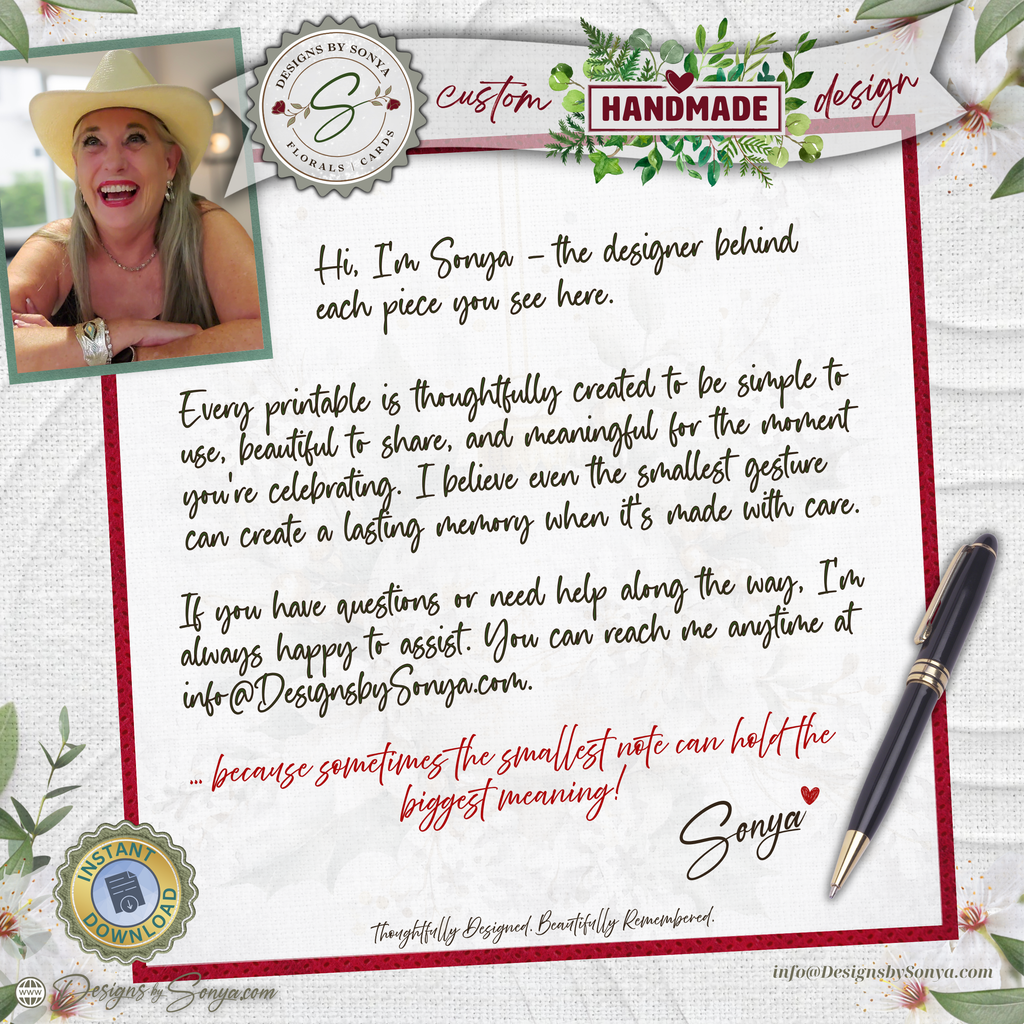 DESIGNS BY SONYA
S
FLORALS | CARDS
custom
HANDMADE
design
Hi, I'm Sonya – the designer behind
each piece you see here.
Every printable is thoughtfully created to be simple to
use, beautiful to share, and meaningful for the moment
you're celebrating. I believe even the smallest gesture
can create a lasting memory when it's made with care.
If you have questions or need help along the way, I'm
always happy to assist. You can reach me anytime at
info@DesignsbySonya.com.
... because sometimes the smallest note can hold the
biggest meaning!
Sonya
INSTANT
DOWNLOAD
Thoughtfully Designed. Beautifully Remembered.
WWW
Designs by Sonya.com
info@DesignsbySonya.com